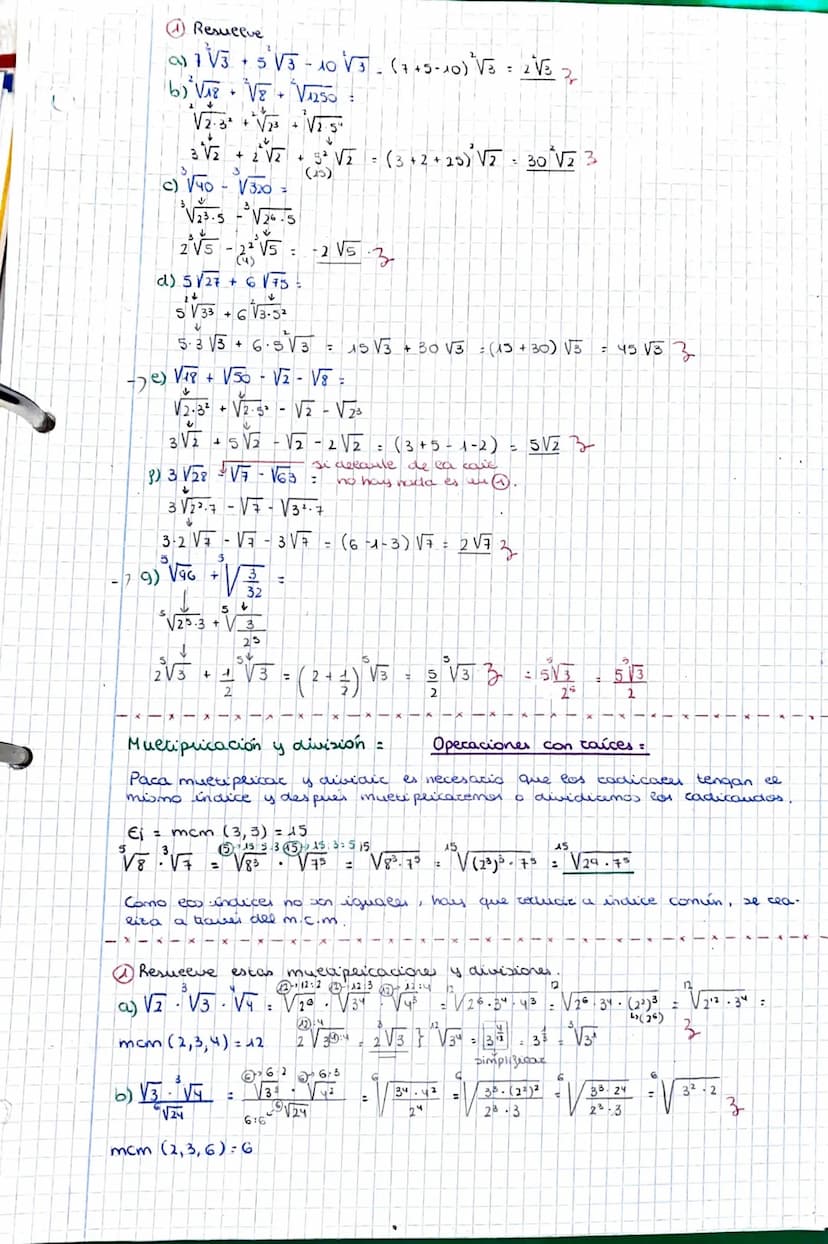 ① Resuelve
a) 7²√3 + 5²√3 - 10²√3 = (7+5-10)²√3 = 2²√3
b) ²√18 + ²√8 + ²√1250 =
²√2·3² + ²√2³ + ²√2·5⁴
3²√2 + 2²√2 + 5²²√2 = (3+2+25)²√2 = 30²√2
(25)
c) ³√40 - ³√320 =
³√2³·5 - ³√2⁶·5
2³√5 - 2²³√5 = -2√5
(4)
d) 5√27 + 6√75 =
5²√3³ + 6²√3·5²
5·3√3 + 6·5²√3 = 15√3 + 30√3 = (15+30)√3 = 45√3
→ e) √18 + √50 - √2 - √8 =
√2·3² + √2·5² - √2 - √2³
3√2 + 5√2 - √2 - 2√2 = (3+5-1-2) = 5√2
si delante de la raíz
f) 3√28 - √7 - √63 = no hay nada es un ①.
3√2²·7 - √7 - √3²·7
3·2√7 - √7 - 3√7 = (6-1-3)√7 = 2√7
→ g) ⁵√96 + ⁵√3/32 =
⁵√2⁵·3 + ⁵√3/2⁵
2⁵√3 + 1/2 ⁵√3 = (2 + 1/2) ⁵√3 = 5/2 ⁵√3 = = 5⁵√3/2
Multiplicación y división = Operaciones con raíces =
Para multiplicar y dividir es necesario que los radicales tengan el
mismo índice y después multiplicaremos o dividimos los radicandos.
Ej = mcm (3,3) = 15
⁵√8 · ³√7 = ¹⁵√8³ · ¹⁵√7⁵ = ¹⁵√8³·7⁵ = ¹⁵√(2³)³·7⁵ = ¹⁵√29·7⁵
Como los índices no son iguales, hay que reducir a índice común, se rea-
liza a través del m.c.m.
① Resuelve estas multiplicaciones y divisiones.
a) √2 · ³√3 · ⁴√4 = ¹²√2⁶ · ¹²√3⁴ · ¹²√4³ = ¹²√2⁶·3⁴·4³ = ¹²√2⁶·3⁴·(2²)³ = ¹²√2¹²·3⁴ =
↳(2⁶)
mcm (2,3,4) = 12 2 ¹²√3⁴ = 2³√3 } ¹²√3⁴ = 3^4/12 = 3^1/3 = ³√3¹
simplificar
b) √3 · ³√4 / ⁶√24 = √3³ · √4² / ⁶√24 = ⁶√3⁴·4²/2⁴ = ⁶√3³·(2²)²/2³·3 = ⁶√3³·24/2³·3 = ⁶√3²·2
mcm (2,3,6) = 6